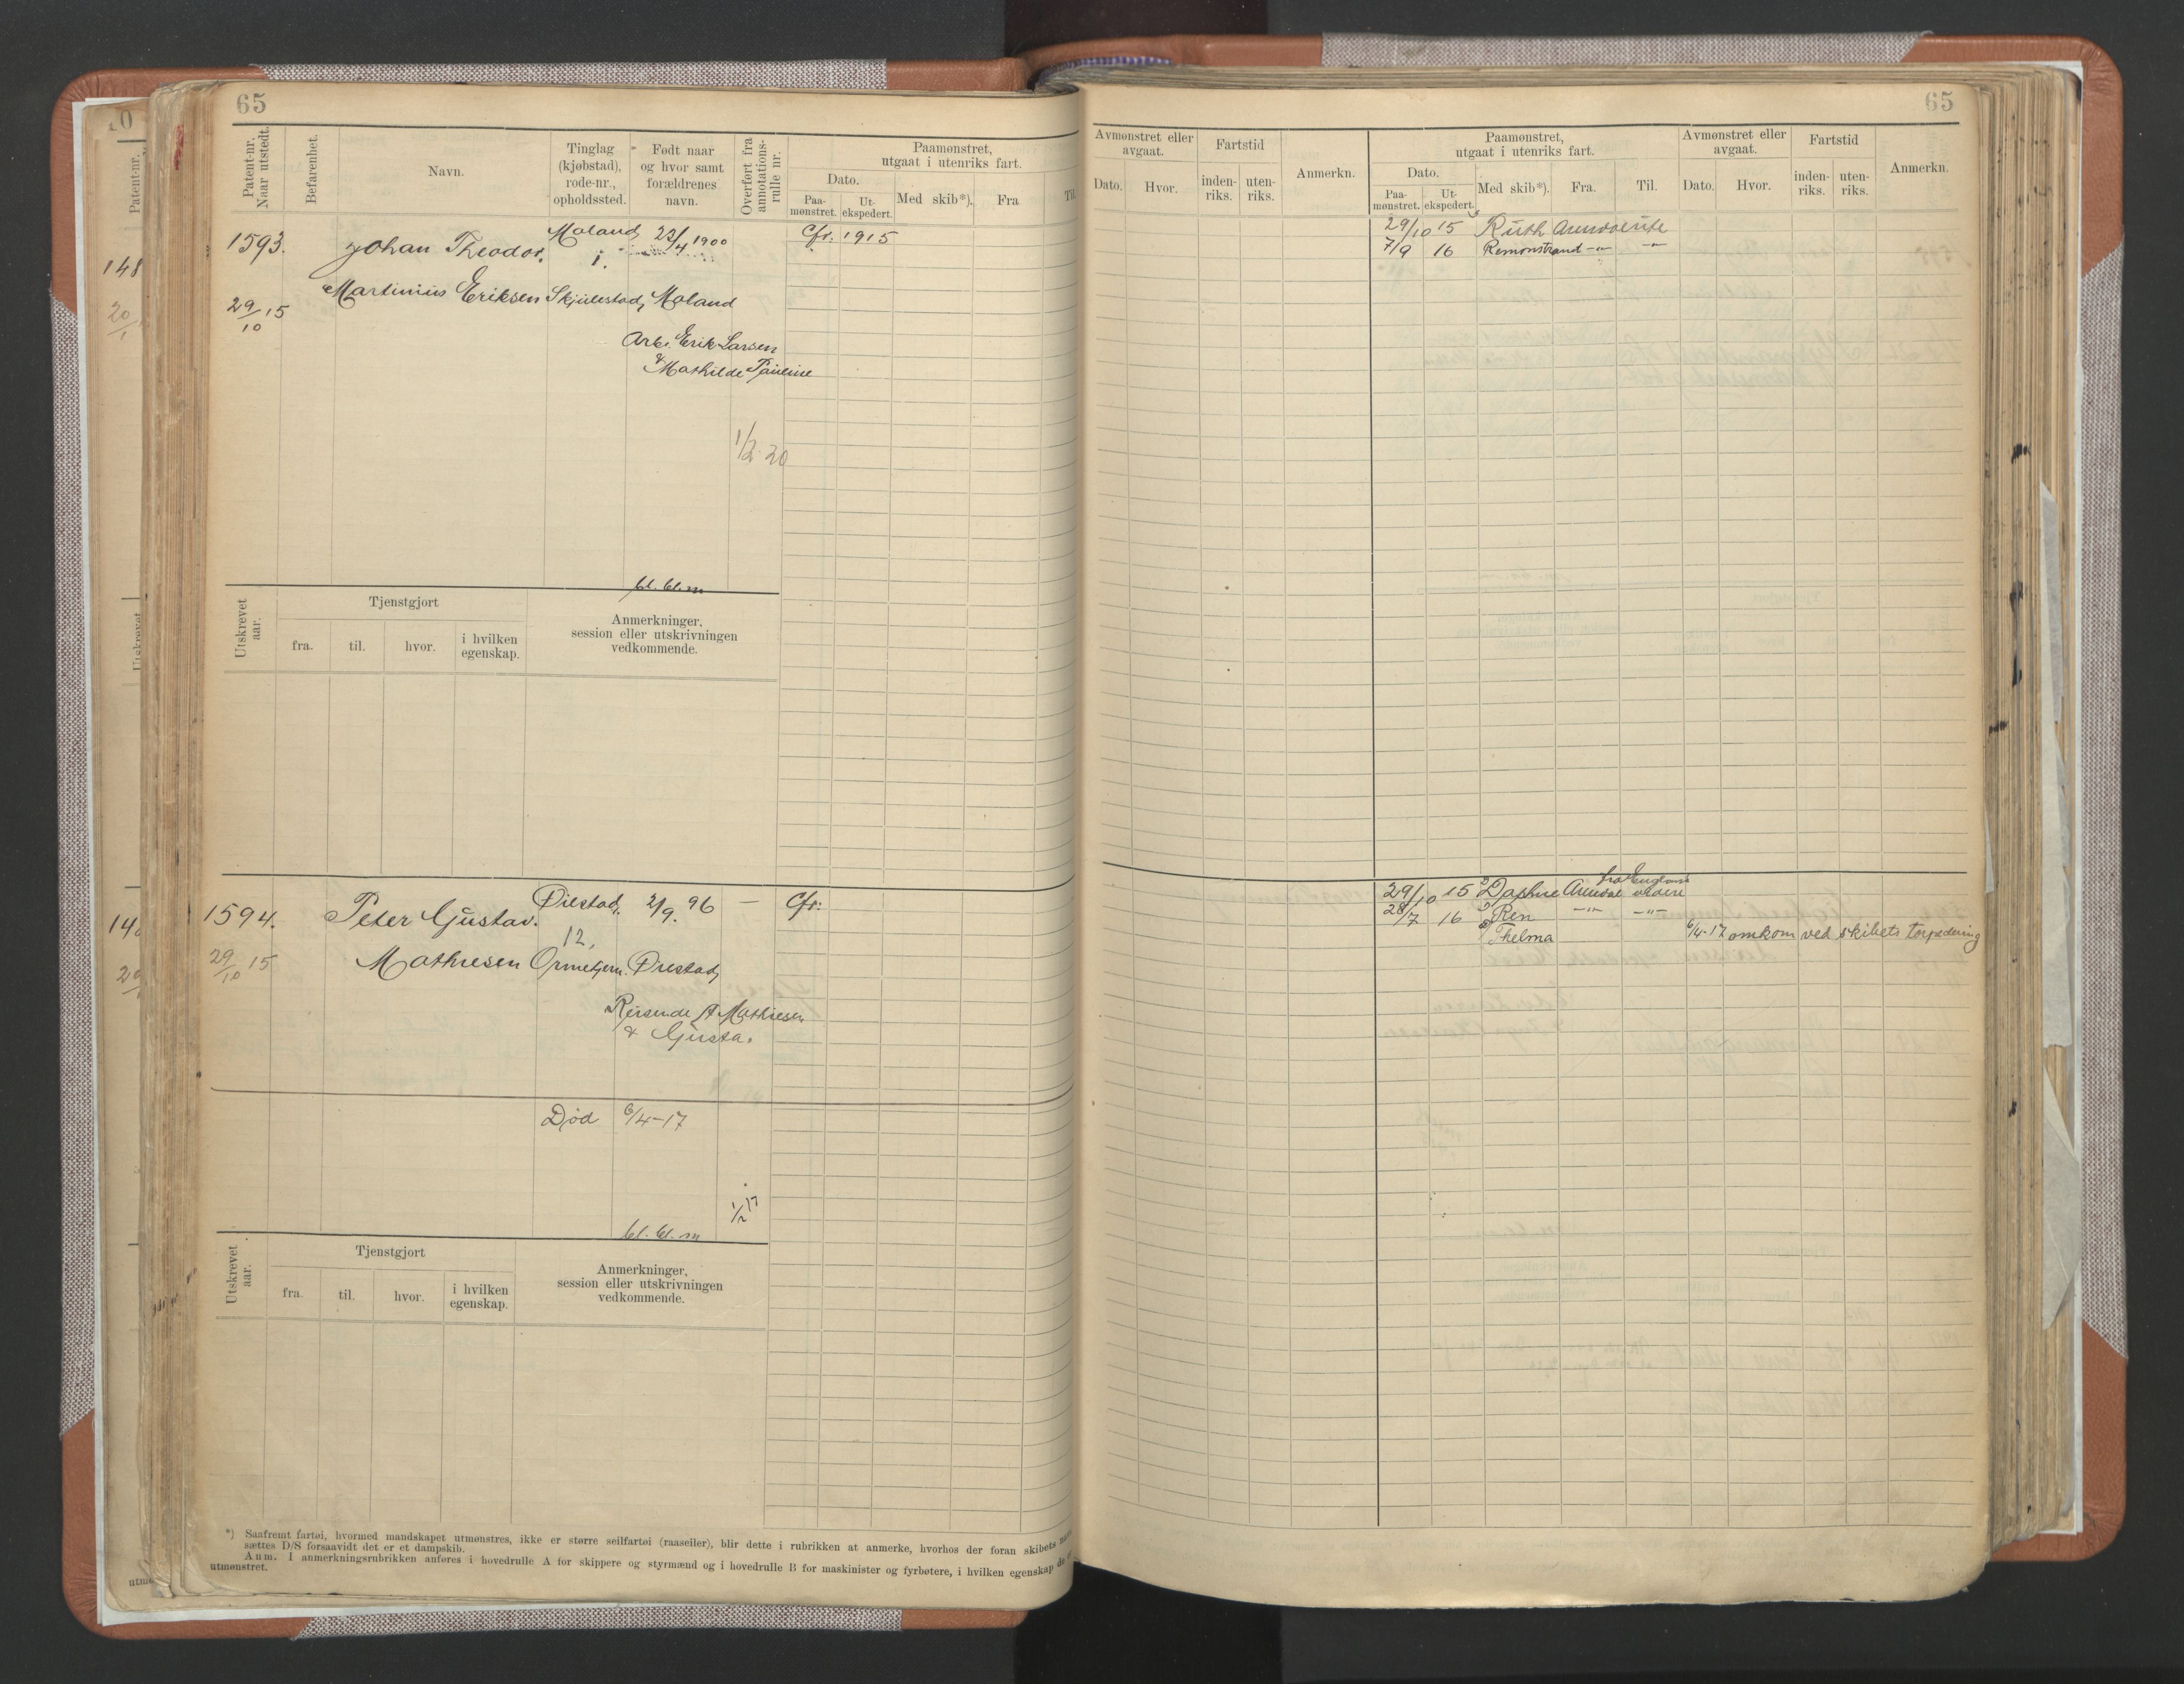 65
Patent-nr. Naar utstedt.
Befarenhet.
Navn.
Tinglag (kjøbstad), rode-nr., opholdssted.
Født naar og hvor samt forældrenes navn.
Overført fra annotations-rulle nr.
Paamønstret, utgaat i utenriks fart.
Dato.
Paa-mønstret.
Ut-ekspedert.
Med skib*).
Fra
Til.
1593.
Johan Theodor.
Moland
22/4 1900
Cfr. 1915
1.
29/10 15
Martinius Eriksen
Skjulestad,
Moland
Arb. Erik Larsen
& Mathilde Pauline
1/2 20
bl. bl. m
Utskrevet aar.
Tjenstgjort
fra.
til.
hvor.
i hvilken egenskap.
Anmerkninger, session eller utskrivningen vedkommende.
1594.
Peter Gustav.
Øiestad.
2/9. 96
—
Cfr:
12.
29/10 15
Mathiesen
Øiestad,
Reisende A Mathiesen
& Gusta.
Død 6/4-17
1/2 17
bl. bl. m
Utskrevet aar.
Tjenstgjort
fra.
til.
hvor.
i hvilken egenskap.
Anmerkninger, session eller utskrivningen vedkommende.
*) Saafremt fartøi, hvormed mandskapet utmønstres, ikke er større seilfartøi (raaseiler), blir dette i rubrikken at anmerke, hvorhos der foran skibets
sættes D/S forsaavidt det er et dampskib.
Anm. I anmerkningsrubrikken anføres i hovedrulle A for skippere og styrmænd og i hovedrulle B for maskinister og fyrbøtere, i hvilken egenskap de
utmønstret.
65
Avmønstret eller avgaat.
Dato.
Hvor.
Fartstid
inden-riks.
uten-riks.
Anmerkn.
Paamønstret, utgaat i utenriks fart.
Dato.
Paa-mønstret.
Ut-ekspedert.
Med skib*).
Fra.
Til.
Avmønstret eller avgaat.
Dato.
Hvor.
Fartstid
inden-riks.
uten-riks.
Anmerkn.
29/10 15 Ruth Arendal
7/9 16 Remonstrand -"- -"-
fra England
29/10 15 Daphne Arendal videre
28/7 16 Ren -"- -"-
Thelma 6/4-17 omkom ved skibets torpedering